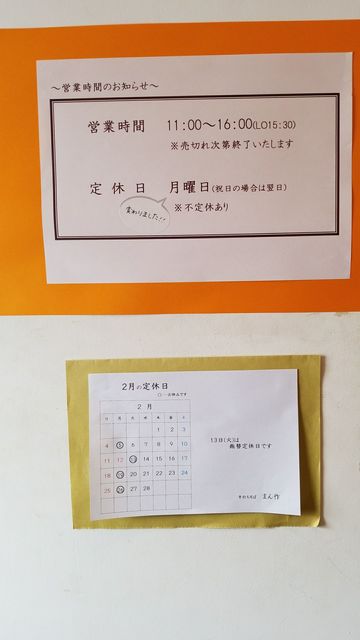 ～営業時間のお知らせ～
営業時間 11:00～16:00(LO15:30)
※売切れ次第終了いたします
定休日 月曜日(祝日の場合は翌日)
変わりました!!
※不定休あり
2月の定休日
○…お休みです
2 月
日 月 火 水 木 金 土
1 2 3
4 5 6 7 8 9 10
11 12 13 14 15 16 17
18 19 20 21 22 23 24
25 26 27 28
13日(火)は
振替定休日です
まん作